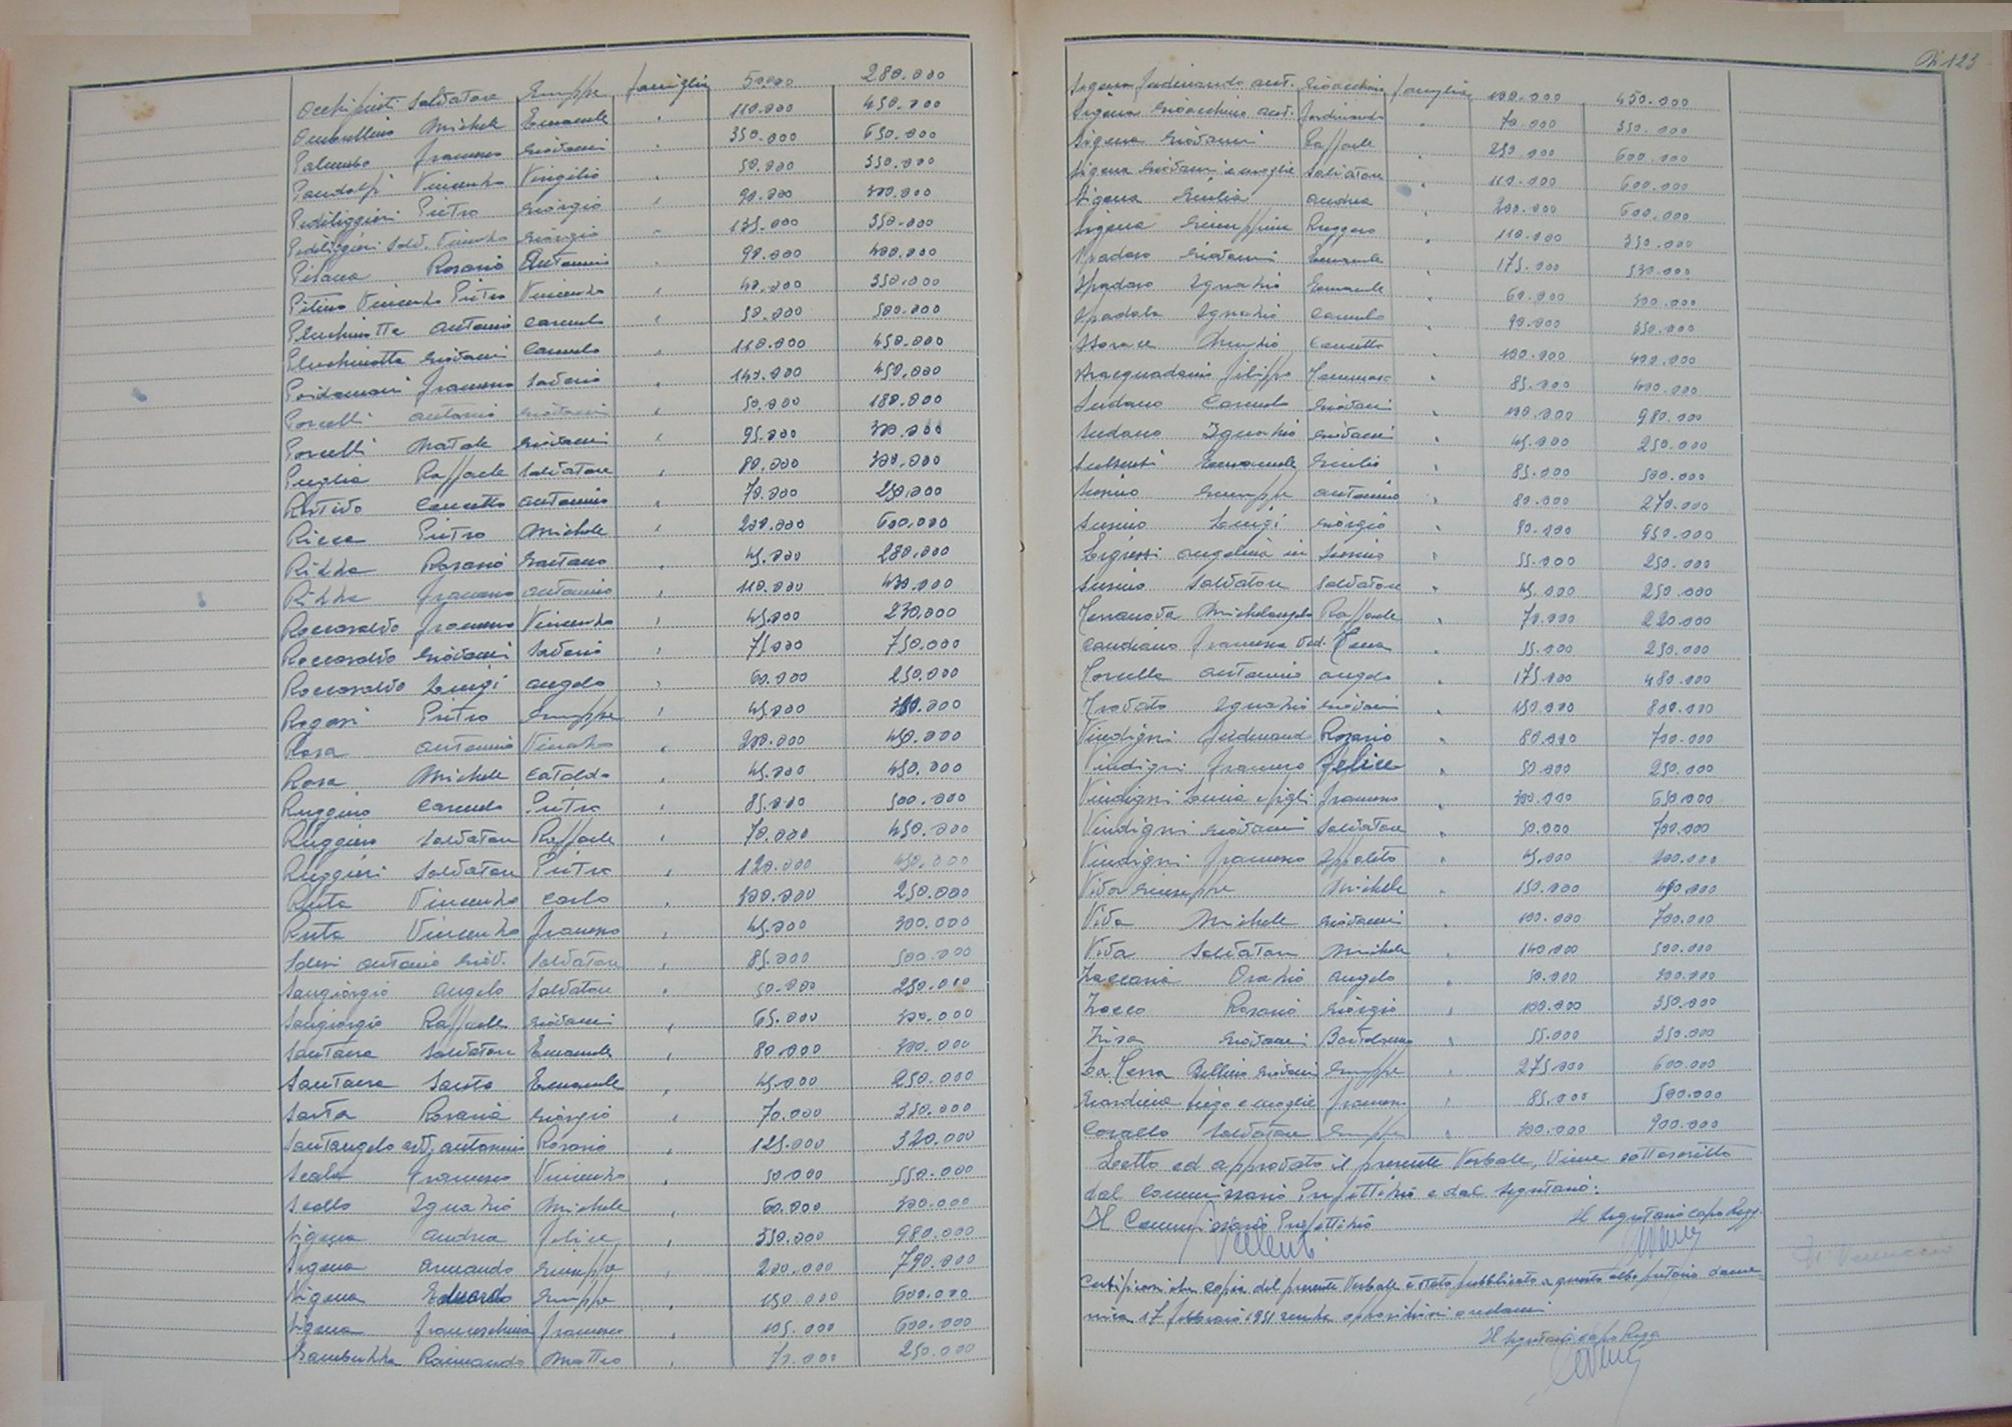 Occhipinti Salvatore Giuseppe famiglia 50.000 280.000
Michele Emanuele " 110.000 450.000
Palumbo Francesco Giovanni " 350.000 650.000
Pandolfi Vincenzo Virgilio " 50.000 350.000
Pediliggieri Pietro Giorgio " 90.000 300.000
Pediliggieri Salv. Vincenzo Giorgio " 135.000 350.000
Pisana Rosario Antonino " 90.000 400.000
Pitino Vincenzo Pietro Vincenzo " 40.000 350.000
Pluchinotta Antonio Carmelo " 50.000 500.000
Pluchinotta Giovanni Carmelo " 110.000 450.000
Poidomani Francesco Saverio " 140.000 450.000
Porcelli Antonio Giovanni " 50.000 180.000
Porcelli Natale Giovanni " 95.000 300.000
Puglia Raffaele Salvatore " 80.000 300.000
Restivo Concetto Antonino " 70.000 250.000
Ricca Pietro Michele " 200.000 600.000
Rizza Rosario Gaetano " 45.000 280.000
Rizza Francesco Antonino " 110.000 430.000
Roccasalvo Francesco Vincenzo " 45.000 230.000
Roccasalvo Giovanni Saverio " 75.000 750.000
Roccasalvo Luigi Angelo " 60.000 250.000
Rogasi Pietro Giuseppe " 45.000 .000
Rosa Antonino Vincenzo " 200.000 450.000
Rosa Michele Cataldo " 45.000 450.000
Ruggero Carmelo Pietro " 85.000 500.000
Ruggero Salvatore Raffaele " 70.000 450.000
Ruggieri Salvatore Pietro " 120.000 450.000
Ruta Vincenzo Carlo " 100.000 250.000
Ruta Vincenzo Francesco " 45.000 300.000
Antonio Giov. Salvatore " 85.000 500.000
Sangiorgio Angelo Salvatore " 50.000 250.000
Sangiorgio Raffaele Giovanni " 65.000 300.000
Santaera Salvatore Emanuele " 80.000 300.000
Santaera Santo Emanuele " 45.000 250.000
Sarta Rosario Giorgio " 70.000 350.000
Santangelo avv. Antonino Rosario " 125.000 320.000
Scala Francesco Vincenzo " 50.000 550.000
Scollo Ignazio Michele " 60.000 300.000
Sigona Andrea Felice " 350.000 980.000
Sigona Armando Giuseppe " 200.000 790.000
Sigona Eduardo Giuseppe " 150.000 600.000
Sigona Franceschino Francesco " 105.000 600.000
Raimondo Matteo " 70.000 250.000
N 123
Sigona Ferdinando ant. Gioacchino famiglia 100.000 450.000
Sigona Gioacchino ant. Ferdinando " 70.000 350.000
Sigona Giovanni Raffaele " 250.000 600.000
Sigona Giovanni e moglie Salvatore " 110.000 600.000
Sigona Giulia Andrea " 200.000 600.000
Sigona Giuseppina Ruggero " 110.000 350.000
Spadaro Giovanni Emanuele " 175.000 530.000
Spadaro Ignazio Emanuele " 60.000 300.000
Spadola Ignazio Carmelo " 90.000 350.000
Storace Nunzio Concetto " 100.000 400.000
Stracquadanio Filippo Tommaso " 85.000 400.000
Sudano Carmelo Giovanni " 100.000 980.000
Sudano Ignazio Giovanni " 45.000 250.000
Emanuele Giulio " 85.000 500.000
Susino Giuseppe Antonino " 80.000 270.000
Susino Luigi Giorgio " 80.000 950.000
Angelina in Susino " 55.000 250.000
Susino Salvatore Salvatore " 45.000 250.000
Terranova Michelangelo Raffaele " 70.000 220.000
Candiano Francesca Ved. Terra " 55.000 250.000
Torcella Antonino Angelo " 175.000 480.000
Trovato Ignazio Giovanni " 150.000 800.000
Vindigni Ferdinand Rosario " 80.000 700.000
Vindigni Francesco Felice " 50.000 250.000
Vindigni Lucia e figli Francesco " 300.000 650.000
Vindigni Giovanni Salvatore " 50.000 700.000
Vindigni Francesco Ippolito " 45.000 200.000
Viva Giuseppe Michele " 150.000 .000
Viva Michele Giovanni " 100.000 700.000
Viva Salvatore Michele " 140.000 500.000
Zaccaria Orazio Angelo " 50.000 300.000
Zocco Rosario Giorgio " 100.000 350.000
Zisa Giovanni Bartolomeo " 55.000 350.000
La Terra Bellino Giovanni Giuseppe " 275.000 600.000
Giardina Diego e moglie Francesco " 85.000 500.000
Corallo Salvatore Giuseppe " 300.000 900.000
Letto ed approvato il presente Verbale, viene sottoscritto
dal Commissario Prefettizio e dal Segretario:
Il Commissario Prefettizio Il Segretario capo Regg.
Certificasi che copia del presente Verbale è stata pubblicata a questo albo pretorio dome-
nica 17 febbraio 1951 senza opposizioni o reclami
Il Segretario capo Regg.